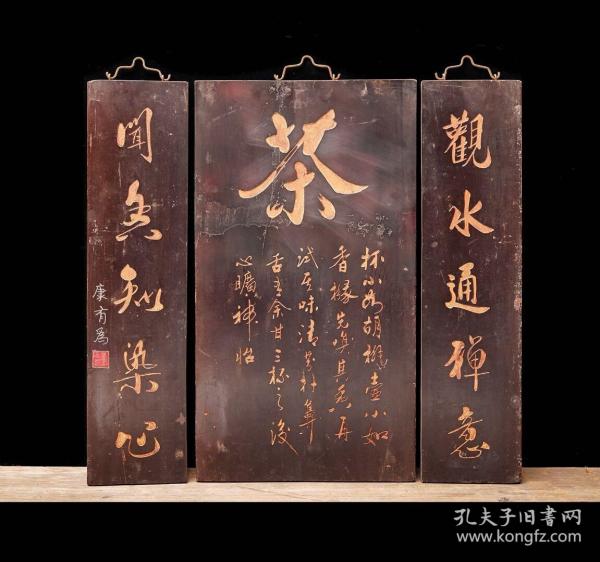 觀水通禪意
茶
杯小如胡桃壺小如
香櫞先嗅其香再
试其味清芬扑鼻
舌有余甘三杯之後
心曠神怡
聞香知染心
康有為
孔夫子旧書网
www.kongfz.com